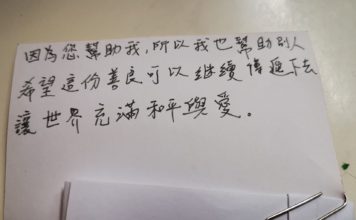 因為您幫助我，所以我也幫助別人
希望這份善良可以繼續傳遞下去
讓世界充滿和平與愛。